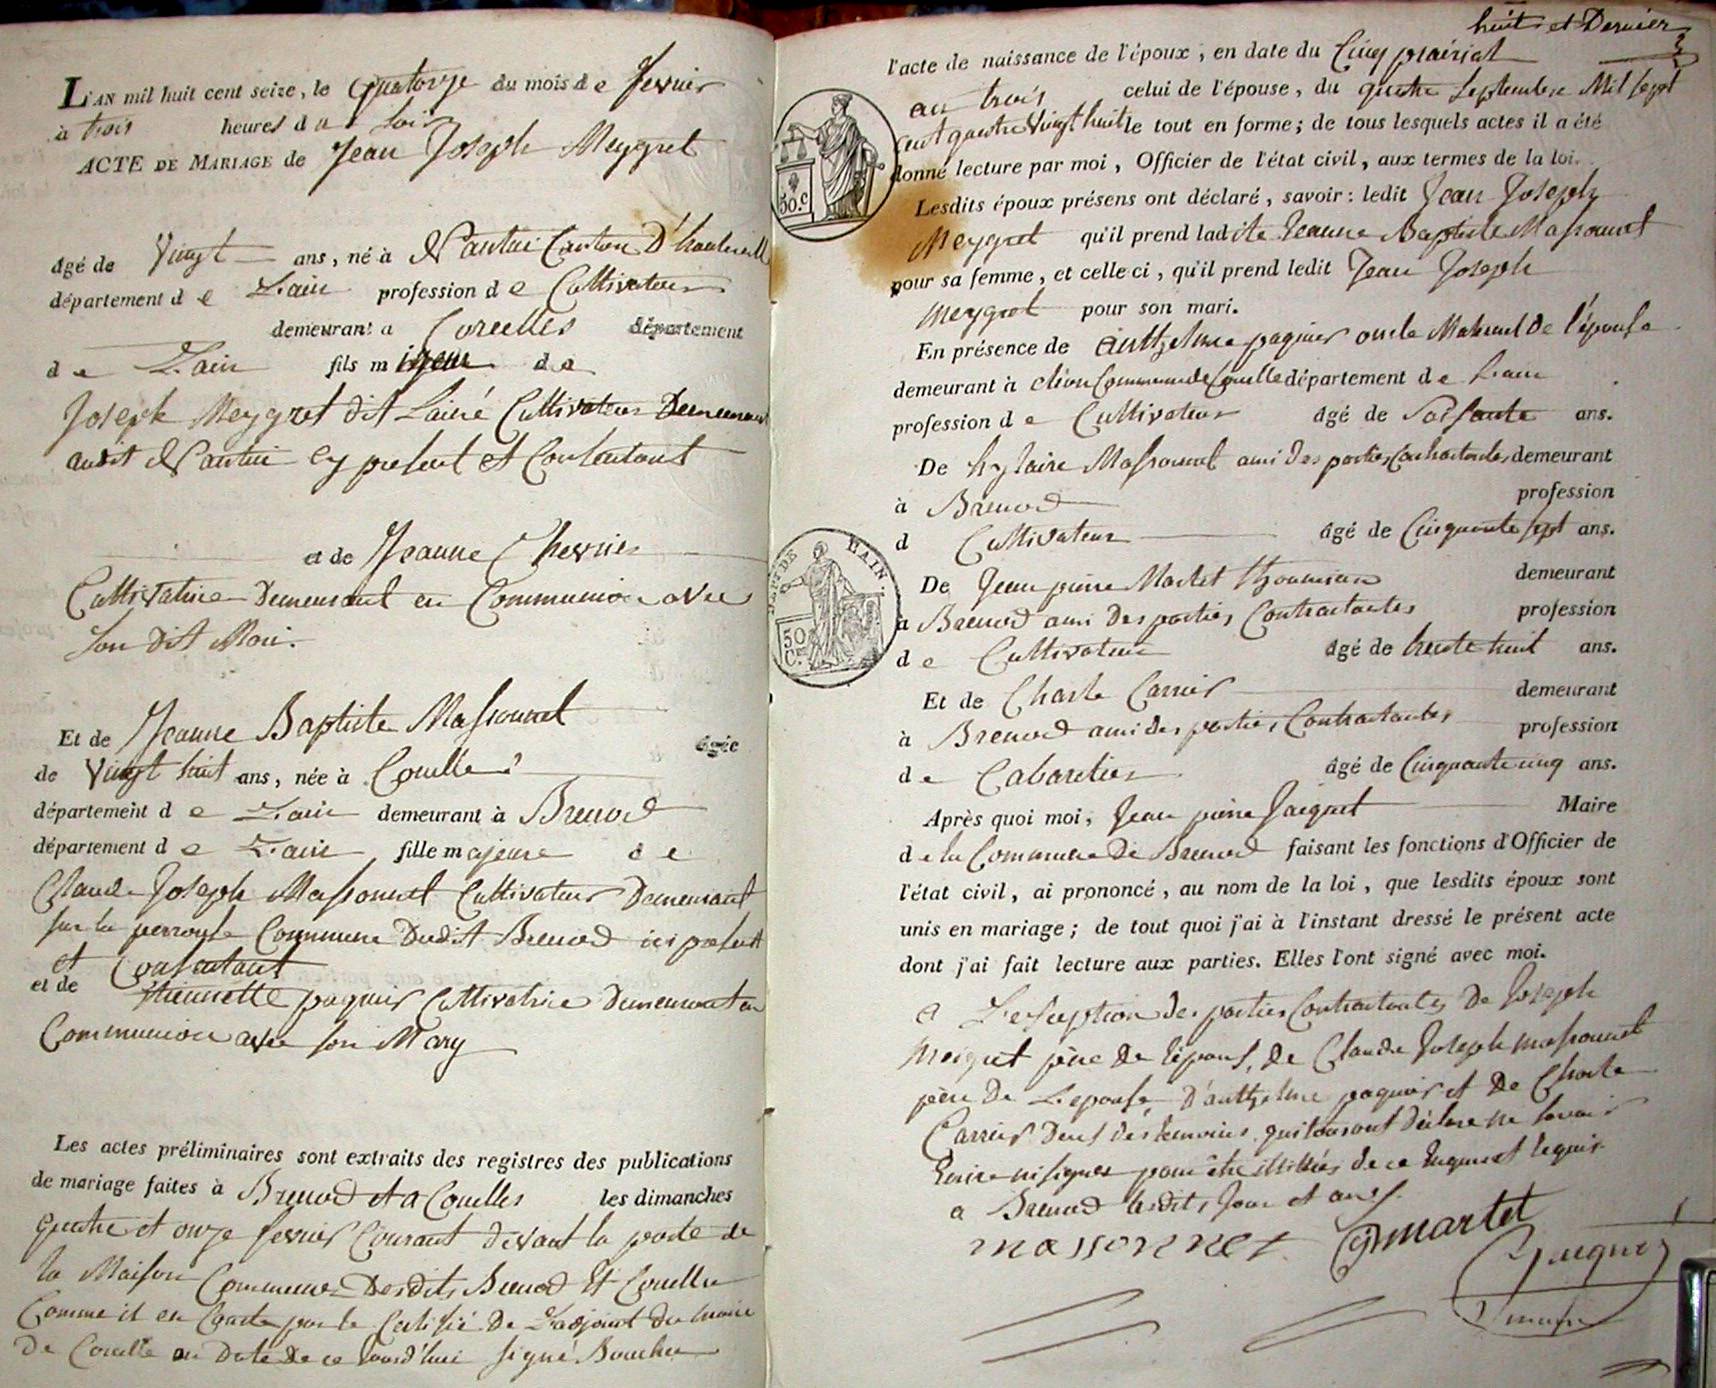 L'AN mil huit cent seize, le quatorze du mois de fevrier
à trois heures du soir
ACTE DE MARIAGE de Jean Joseph Meygret
âgé de Vingt ans, né à Nantui Canton D'hauteville
département de L'ain profession de Cultivateur
demeurant a Corcelles département
de L'ain fils mineur de
Joseph Meygret dit Lainé Cultivateur Demeurant
audit Nantui cy present et Consentant
et de Jeanne Chevrier
Cultivatrice Demeurant en Communion avec
son dit Mari.
Et de Jeanne Baptiste Massonnet
âgée
de Vingt huit ans, née à Corcelles
département de L'ain demeurant à Brenod
département de L'ain fille majeure de
Claude Joseph Massonnet Cultivateur Demeurant
sur la perrouse Commune Dudit Brenod ici present
et Consentant
et de Etiennette paquier Cultivatrice Demeurant en
Communion avec son Mary
Les actes préliminaires sont extraits des registres des publications
de mariage faites à Brenod et a Corcelles les dimanches
quatre et onze fevrier Courant devant la porte de
la Maison Commune Desdits Brenod Et Corcelles
Comme il en Conste par le Certificé De L'adjoint du maire
de Corcelle en Date De ce jourd'hui signé Boucher
huit et Dernier
l'acte de naissance de l'époux, en date du Cinq prairial
an trois celui de l'épouse, du quatre Septembre Mil sept
cent quatre Vingt huit le tout en forme; de tous lesquels actes il a été
donné lecture par moi, Officier de l'état civil, aux termes de la loi.
30.c
Lesdits époux présens ont déclaré, savoir: ledit Jean Joseph
Meygret qu'il prend ladite Jeanne Baptiste Massonnet
pour sa femme, et celle ci, qu'il prend ledit Jean Joseph
Meygret pour son mari.
En présence de Anthelme paquier oncle Maternel de l'épouse
demeurant à Commune de Corcelle département de L'ain
profession de Cultivateur âgé de Soissante ans.
De hylaire Massonnet ami des parties Contractantes demeurant
à Brenod profession
d Cultivateur âgé de Cinquante sept ans.
DEPT DE L'AIN.
De Jean pierre Martet demeurant
a Brenod ami des parties Contractantes profession
50 C.
de Cultivateur âgé de trente huit ans.
Et de Charle Carrier demeurant
à Brenod ami des parties Contractantes profession
de Cabaretier âgé de Cinquante cinq ans.
Après quoi moi, Jean pierre Jacquet Maire
de la Commune De Brenod faisant les fonctions d'Officier de
l'état civil, ai prononcé, au nom de la loi, que lesdits époux sont
unis en mariage; de tout quoi j'ai à l'instant dressé le présent acte
dont j'ai fait lecture aux parties. Elles l'ont signé avec moi.
a L'esception des parties Contractantes De Joseph
Meigret père De l'epous, de Claude Joseph massonnet
père De L'epouse, D'anthelme paquier et De Charle
Carrier Deus des temoins qui tous ont déclare ne savoir
Ecrire ni signer pour être illitérés de ce Enquis et Requis
a Brenod lesdits Jour et ans.
massonnet martet Jacquet
maire